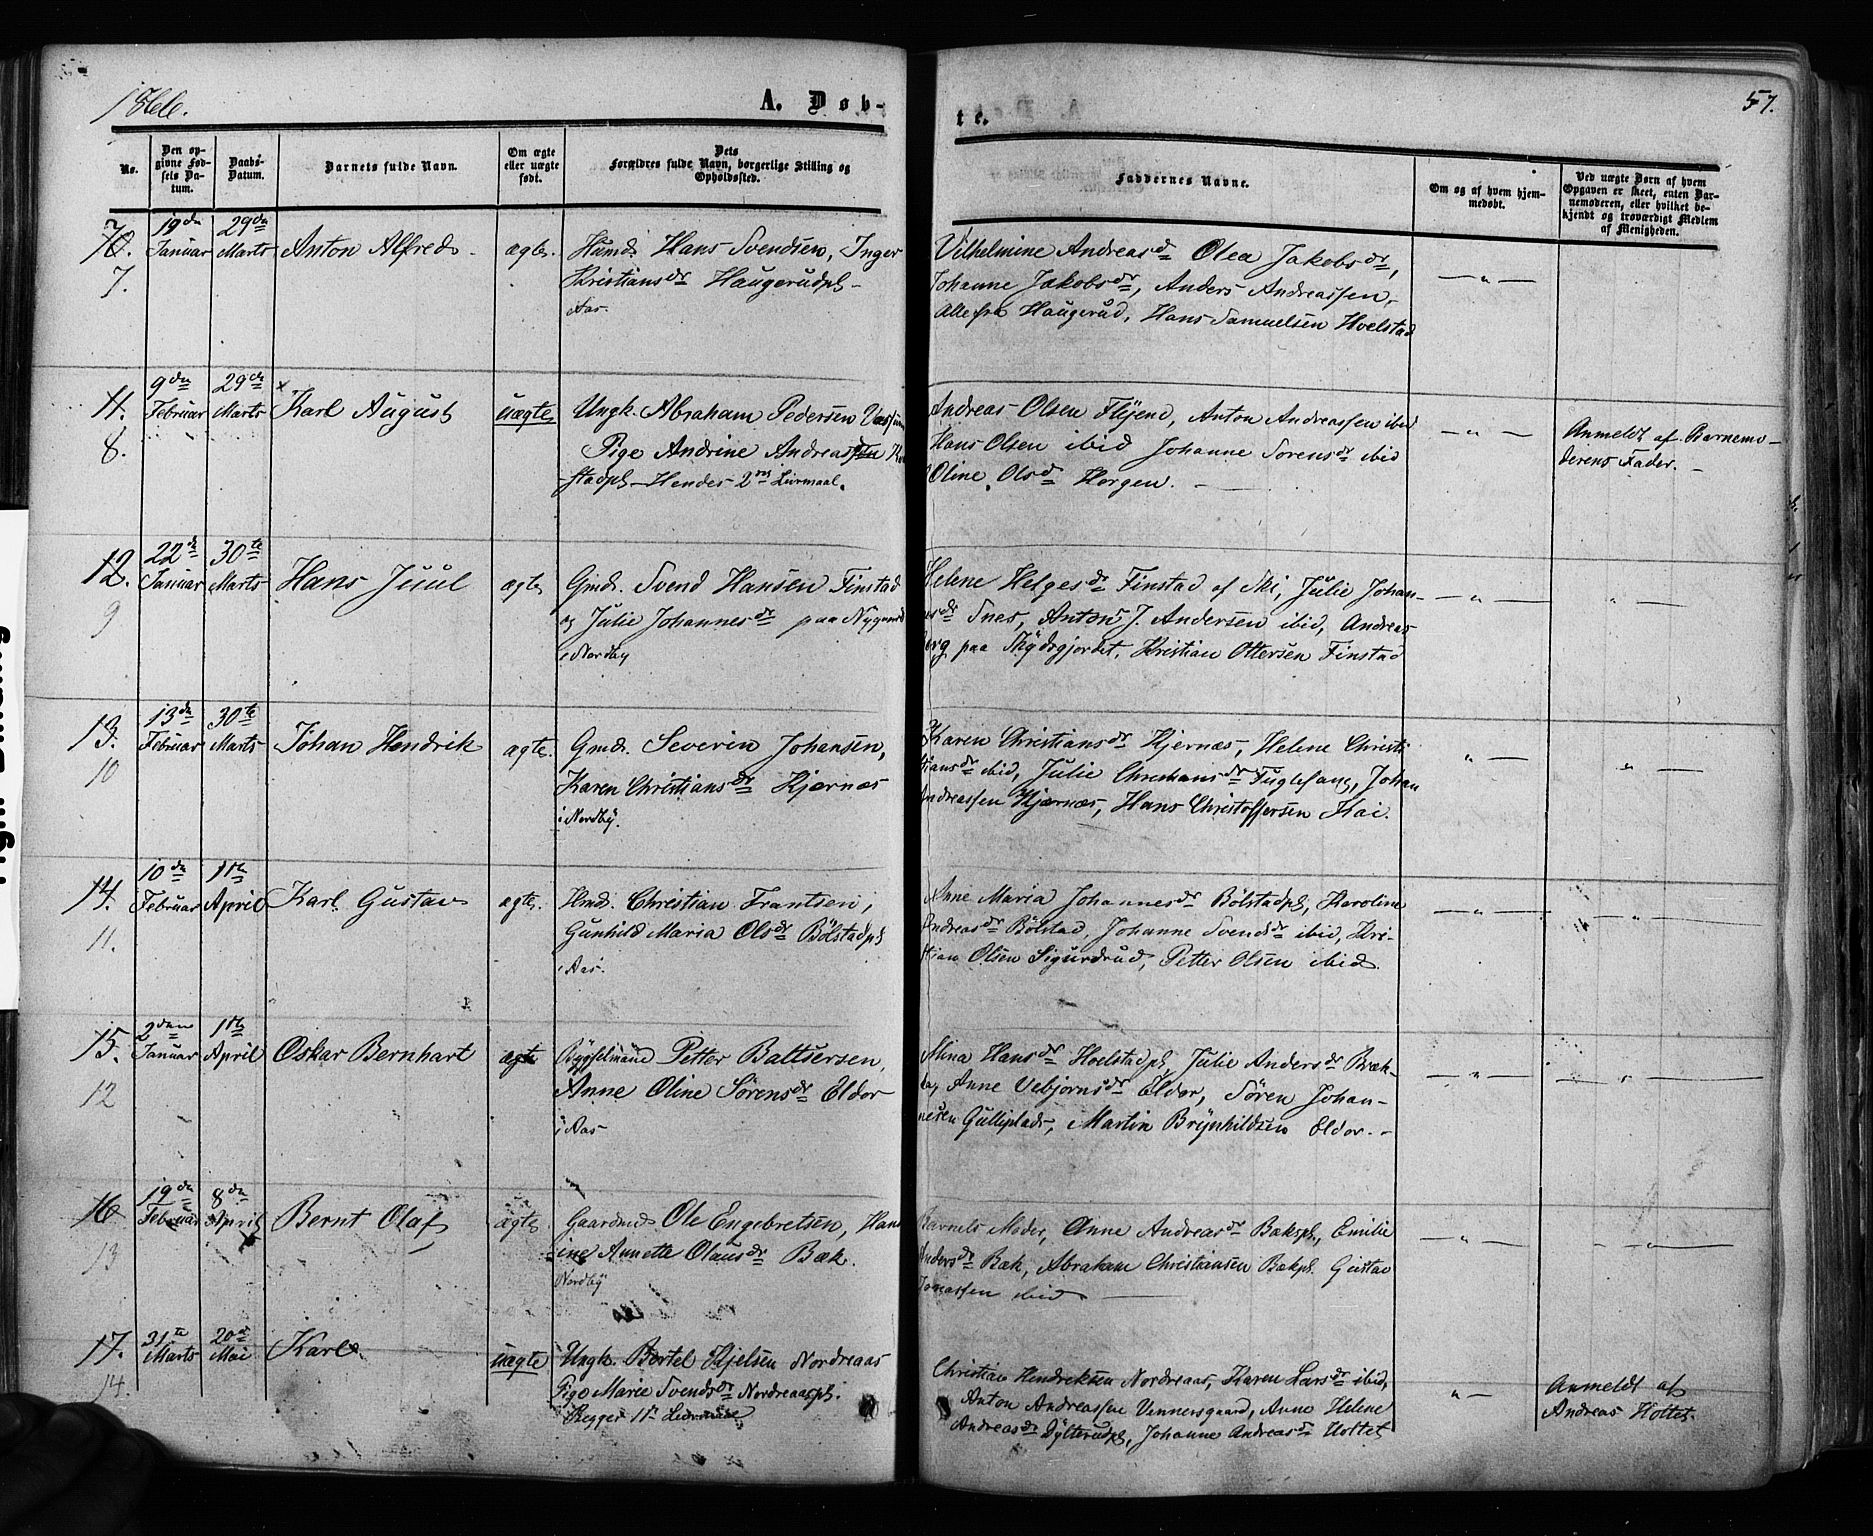 1866.
A. Døb-
te.
57.
No.
Den op-
givne Fød-
sels Da-
tum.
Daabs-
Datum.
Barnets fulde Navn.
Om ægte
eller uægte
født.
Dets
Forældres fulde Navn, borgerlige Stilling og
Opholdssted.
Faddernes Navne.
Om og af hvem hjem-
medøbt.
Ved uægte Børn af hvem
Opgaven er skeet, enten Bar-
nemoderen, eller hvilket be-
kjendt og troværdigt Medlem
af Menigheden.
10.
7.
19de
Januar
29de
Marts
Anton Alfred
ægte
Husmd. Hans Svendsen, Inger
Kristiansdr Haugerudpl
Aas.
Vilhelmine Andreasd Olea Jakobsdr,
Johanne Jakobsdr, Anders Andreassen,
Alle fra Haugerud, Hans Samuelsen Hvelstad
— " —
11.
8.
9de
Februar
29de
Marts
x
Karl August
uægte
Ungk. Abraham Pedersen
Pige Andrine Andreas
stadpl – Hendes 2m Leirmaal.
Andreas Olsen Fløjend, Anton Andreassen ibid
Hans Olsen ibid Johanne Sorensdr ibid
Oline Olsd Horgen. —
— " —
Anmeldt af Barnemo-
derens Fader. —
12.
9
22de
Januar
30te
Marts
Hans Juul
ægte
Gmd. Svend Hansen Finstad
og Julie Johannesdr paa Nygaard
i Nordby
Helene Helgesdr Finstad af Ski, Julie Johan-
nesdr Snes, Anton J. Andersen ibid, Andreas
paa Thydsgjordet, Kristian Ottersen Finstad
— " —
— " —
13.
10
13de
Februar
30te
Marts
Johan Hendrik
ægte.
Gmd. Severin Johansen,
Karen Christiansdr Kjærnæs
i Nordby.
Karen Christiansdr Kjernæs, Helene Christi-
ansdr ibid, Julie Christiansdr Fuglesang, Johan
Andreassen Kjærnæs, Hans Christoffersen Kai.
— " —
— " —
14.
11.
10de
Februar
1ste
April
Karl Gustav
ægte.
Hmd. Christian Frantsen,
Gunhild Maria Olsdr Bölstadpl
i Aas.
Anne Maria Johannesdr Bölstadpl, Karoline
Andreasdr Bölstad, Johanne Svendsdr ibid, Kri-
stian Olsen Sigurdrud, Petter Olsen ibid.
— " —
— " —
15.
12
2den
Januar
1ste
April
Oskar Bernhart
ægte
Bygselmand Petter Baltsersen,
Anne Oline Sørensdr Eldor
i Aas
Mina Hansdr Hoelstadpl, Julie Andersdr Bæk-
Anne Vebjørnsdr Eldor, Sören Johan-
nesen Gulliplads, Martin Brynhildsen Eldor. –
— " —
— " —
16
13
19de
Februar
8de
April
Bernt Olaf
ægte
Gaardmd Ole Engebretsen, Han-
ine Annette Olausdr Bæk.
Nordby
Barnets Moder, Anne Andreasdr Bækpl., Emilie
Andersdr Bæk, Abraham Christiansen Bækpl. Gustav
Tomassen ibid —
— " —
— " —
17.
14.
31te
Marts
20de
Mai
Karl
uægte
Ungk. Bertel Kjelsen Nordreaas
Pige Marie Svendsdr Nordreaaspl.
Begges 1te Leirmaal
Christian Hendriksen Nordreaas, Karen Larsdr ibid,
Anton Andreassen Vinnersgaard, Anne Helene
Andreasdr Dÿlterudpl, Johanne Andreasdr Holtet
" —
Anmeldt af
Andreas Holtet.